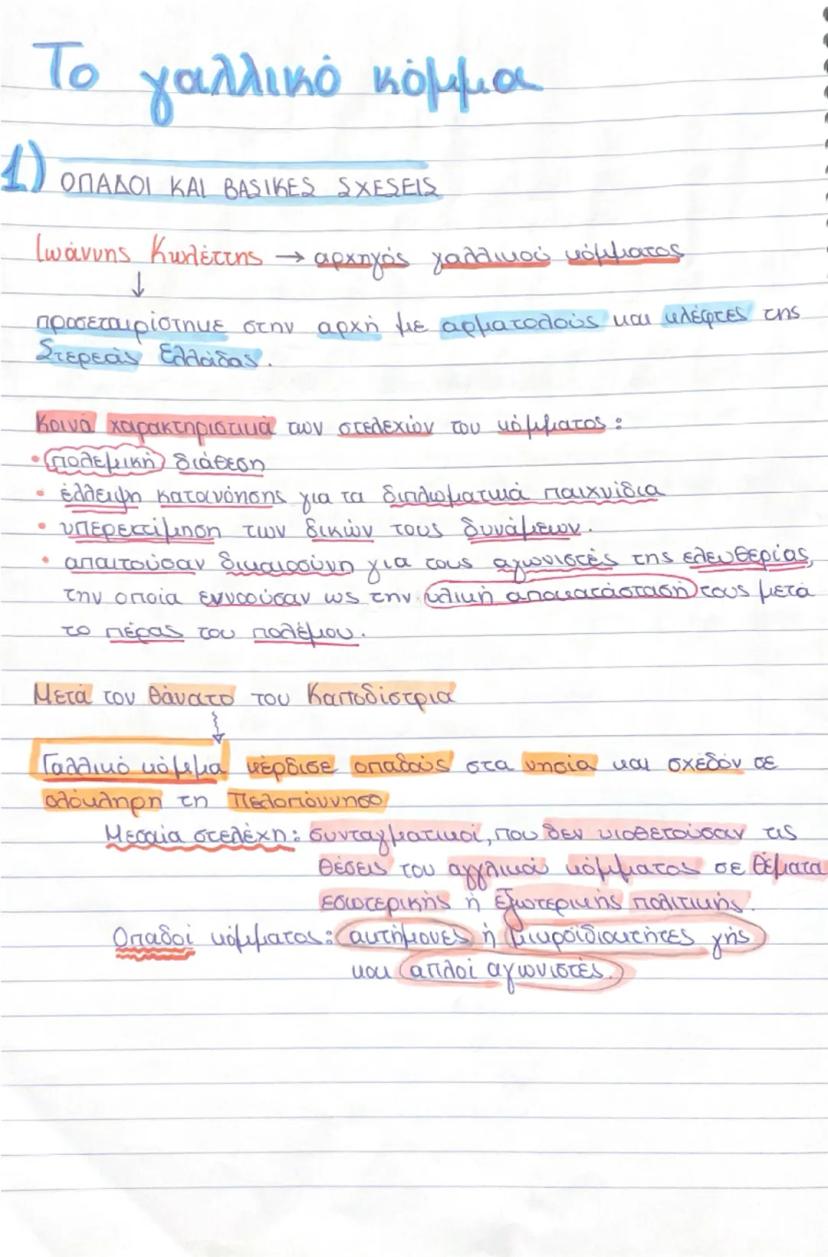 Το γαλλικό κόμμα
1) ΟΠΑΔΟΙ ΚΑΙ BASIKES SXESEIS
Ιωάννης Κωλέττης → αρχηγός γαλλικού κόμματος
↓
προσεταιρίστηκε στην αρχή με αρματολούς και κλέφτες της
Στερεάς Ελλάδας.
Κοινά χαρακτηριστικά των στελεχών του κόμματος:
• πολεμική διάθεση
• έλλειψη κατανόησης για τα διπλωματικά παιχνίδια
• υπερεκτίμηση των δικών τους δυνάμεων.
• απαιτούσαν δικαιοσύνη για τους αγωνιστές της ελευθερίας,
την οποία εννοούσαν ως την υλική αποκατάσταση τους μετά
το πέρας του πολέμου.
Μετά τον θάνατο του Καποδίστρια
↓
Γαλλικό κόμμα κέρδισε οπαδούς στα νησιά και σχεδόν σε
ολόκληρη τη Πελοπόννησο
Μεσαία στελέχη: συνταγματικοί, που δεν υιοθετούσαν τις
θέσεις του αγγλικού κόμματος σε θέματα
εσωτερικής ή εξωτερικής πολιτικής.
Οπαδοί κόμματος: ακτήμονες ή μικροϊδιοκτήτες γής
και απλοί αγωνιστές.